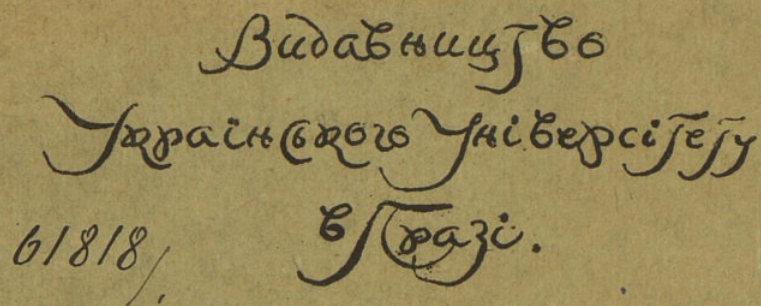 Видавництво
Українського Універсітету
в Празі.
61818/.